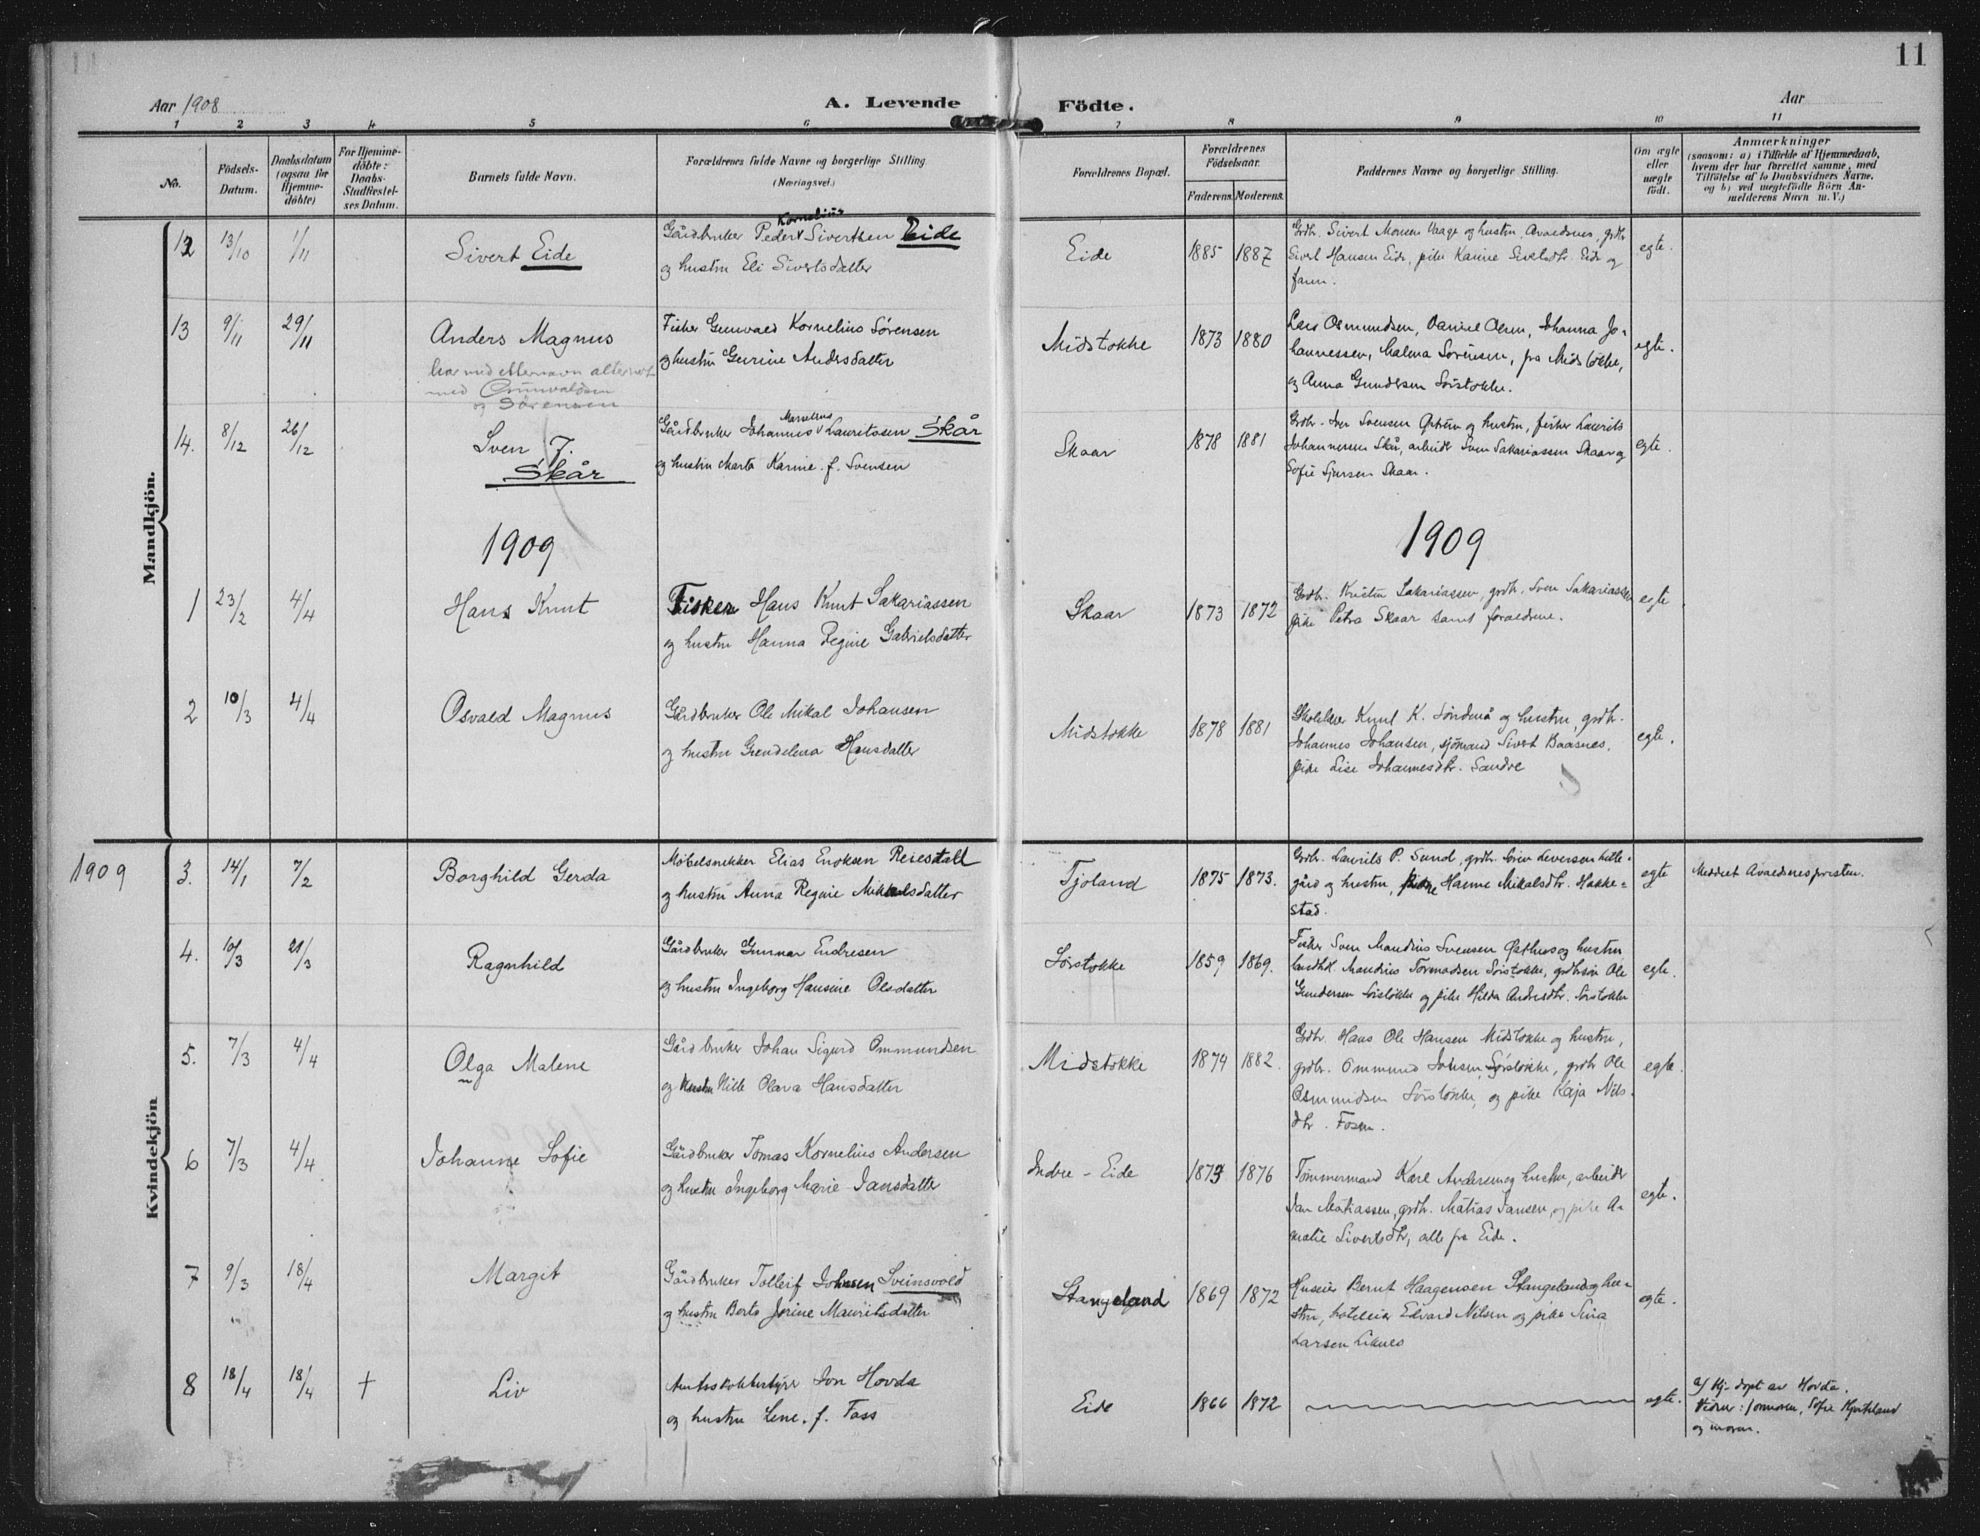 11
Aar 1908
A. Levende
Födte.
Aar
1 2 3 4 5 6 7 8 9 10 11
No.
Födsels-
Datum.
Daabsdatum
(ogsaa for
Hjemme-
döbte)
For Hjemme-
döbte:
Daabs-
Stadfæstel-
ses Datum.
Barnets fulde Navn.
Forældrenes fulde Navne og borgerlige Stilling
(Næringsvei.)
Forældrenes Bopæl.
Forældrenes
Födselsaar.
Faderens. Moderens.
Faddernes Navne og borgerlige Stilling.
Om ægte
eller
uægte
födt.
Anmærkninger
(saasom: a) i Tilfælde af Hjemmedaab,
hvem der har forrettet samme, med
Tilföielse af to Daabsvidners Navne,
og b) ved uegtefödte Börn An-
melderens Navn m. V.)
Mandkjön.
12 13/10 1/11
Sivert Eide
Kornelius
Gårdbruker Peder Sivertsen Eide
og hustru Eli Sivertsdatter
Eide 1885 1887
Grdbr. Sivert Monsen Vaage og hustru, Avaldsnes, grdbr
Sivert Hansen Eide, pike Karine Sivertsdtr. Eide og
faren.
egte.
13 9/11 29/11
Anders Magnus
har med etternavn alternert
med Gunvaldsen
og Sørensen
Fisker Gunvald Kornelius Sørensen
og hustru Gurine Andersdatter
Midstokke 1873 1880
Lars Osmundsen, Daniel Olsen, Johanna Jo-
hannessen, Malena Sørensen, fra Midstokke,
og Anna Gundersen Sørstokke.
egte.
14. 8/12 26/12
Sven J.
Skår
Marselius
Gårdbruker Johannes Lauritssen Skår
og hustru Marta Karine f. Svensen
Skaar 1878 1881
Grdbr. Iver Svensen og hustru, fisker Laurits
Johannesen Skår, arbeider Sven Sakariassen Skaar og
Sofie Sjursen Skaar.
egte.
1909
1909
1 23/2 4/4
Hans Knut
Fisker Hans Knut Sakariassen
og hustru Hanna Regine Gabrielsdatter
Skaar 1873 1872
Grdbr. Kristen Sakariassen, grdbr. Sven Sakariassen
pike Petra Skaar samt foraeldrene.
egte
2 10/3 4/4
Osvald Magnus
Gårdbruker Ole Mikal Johansen
og hustru Grendelena Hansdatter
Midstokke 1878 1881
Knut K. og hustru, grdbr.
Johannes Johansen, sjømand Sivert Baasnes,
pike Lise Johannesdtr. Sandve
egte.
1909
Kvindekjön
3. 14/1 7/2
Borghild Gerda
Møbelsnekker Elias Enoksen Reiestall
og hustru Anna Regine Mikkalsdatter
Tjoland 1875 1873.
Grdbr. Laurits P. Sund, grdbr. Sören Seversen Litle-
gård og hustru, pike Hanne Mikalsdtr. Hakke-
stad.
egte
Meddelt Avaldsnespresten.
4. 10/3 21/3
Ragnhild
Gårdbruker Gunnar Endresen
og hustru Ingeborg Hansine Olsdatter
Sørstokke 1859 1869.
Fisker Sven Mandius Svensen og hustru
landhdl. Mandius Tormodsen Sørstokke, grdbrsøn Ole
Gundersen Sørstokke og pike Hilda Andersdtr. Sørstokke
egte.
5. 7/3 4/4
Olga Malene
Gårdbruker Johan Sigurd Ommundsen
og hustru Nille Olava Hansdatter
Midstokke 1874 1882.
Grdbr. Hans Ole Hansen Midstokke og hustru,
grdbr. Ommund Johsen, Sørstokke, grdbr Ole
Osmundsen Sørstokke, og pike Kaja Nils-
dtr. Fosen.
egte.
6 7/3 4/4
Johanne Sofie
Gårdbruker Tomas Kornelius Andersen
og hustru Ingeborg Marie Jansdatter
Indre-Eide 1873 1876
Tømmermand Karl Andersen og hustru, arbeider
Jan Matiassen, grdbr. Matias Jansen, og pike A-
malie Sivertsdtr, alle fra Eide.
egte.
7 9/3 18/4
Margit
Gårdbruker Tolleif Johnsen Sveinsvold
og hustru Berta Jorine Mauritsdatter
Stangeland 1869 1872
Huseier Bernt Haagensen Stangeland og hu-
stru, hoteleier Edvard Nilsen og pike Sina
Larsen Liknes
egte.
8 18/4 18/4 †
Liv
Amtsskolebestyrer Jon Hovda
og hustru Lene f. Foss
Eide 1866 1872
egte.
a/ Hj-døpt av Hovda.
Vidner: jormoren, Sofie
og moren.